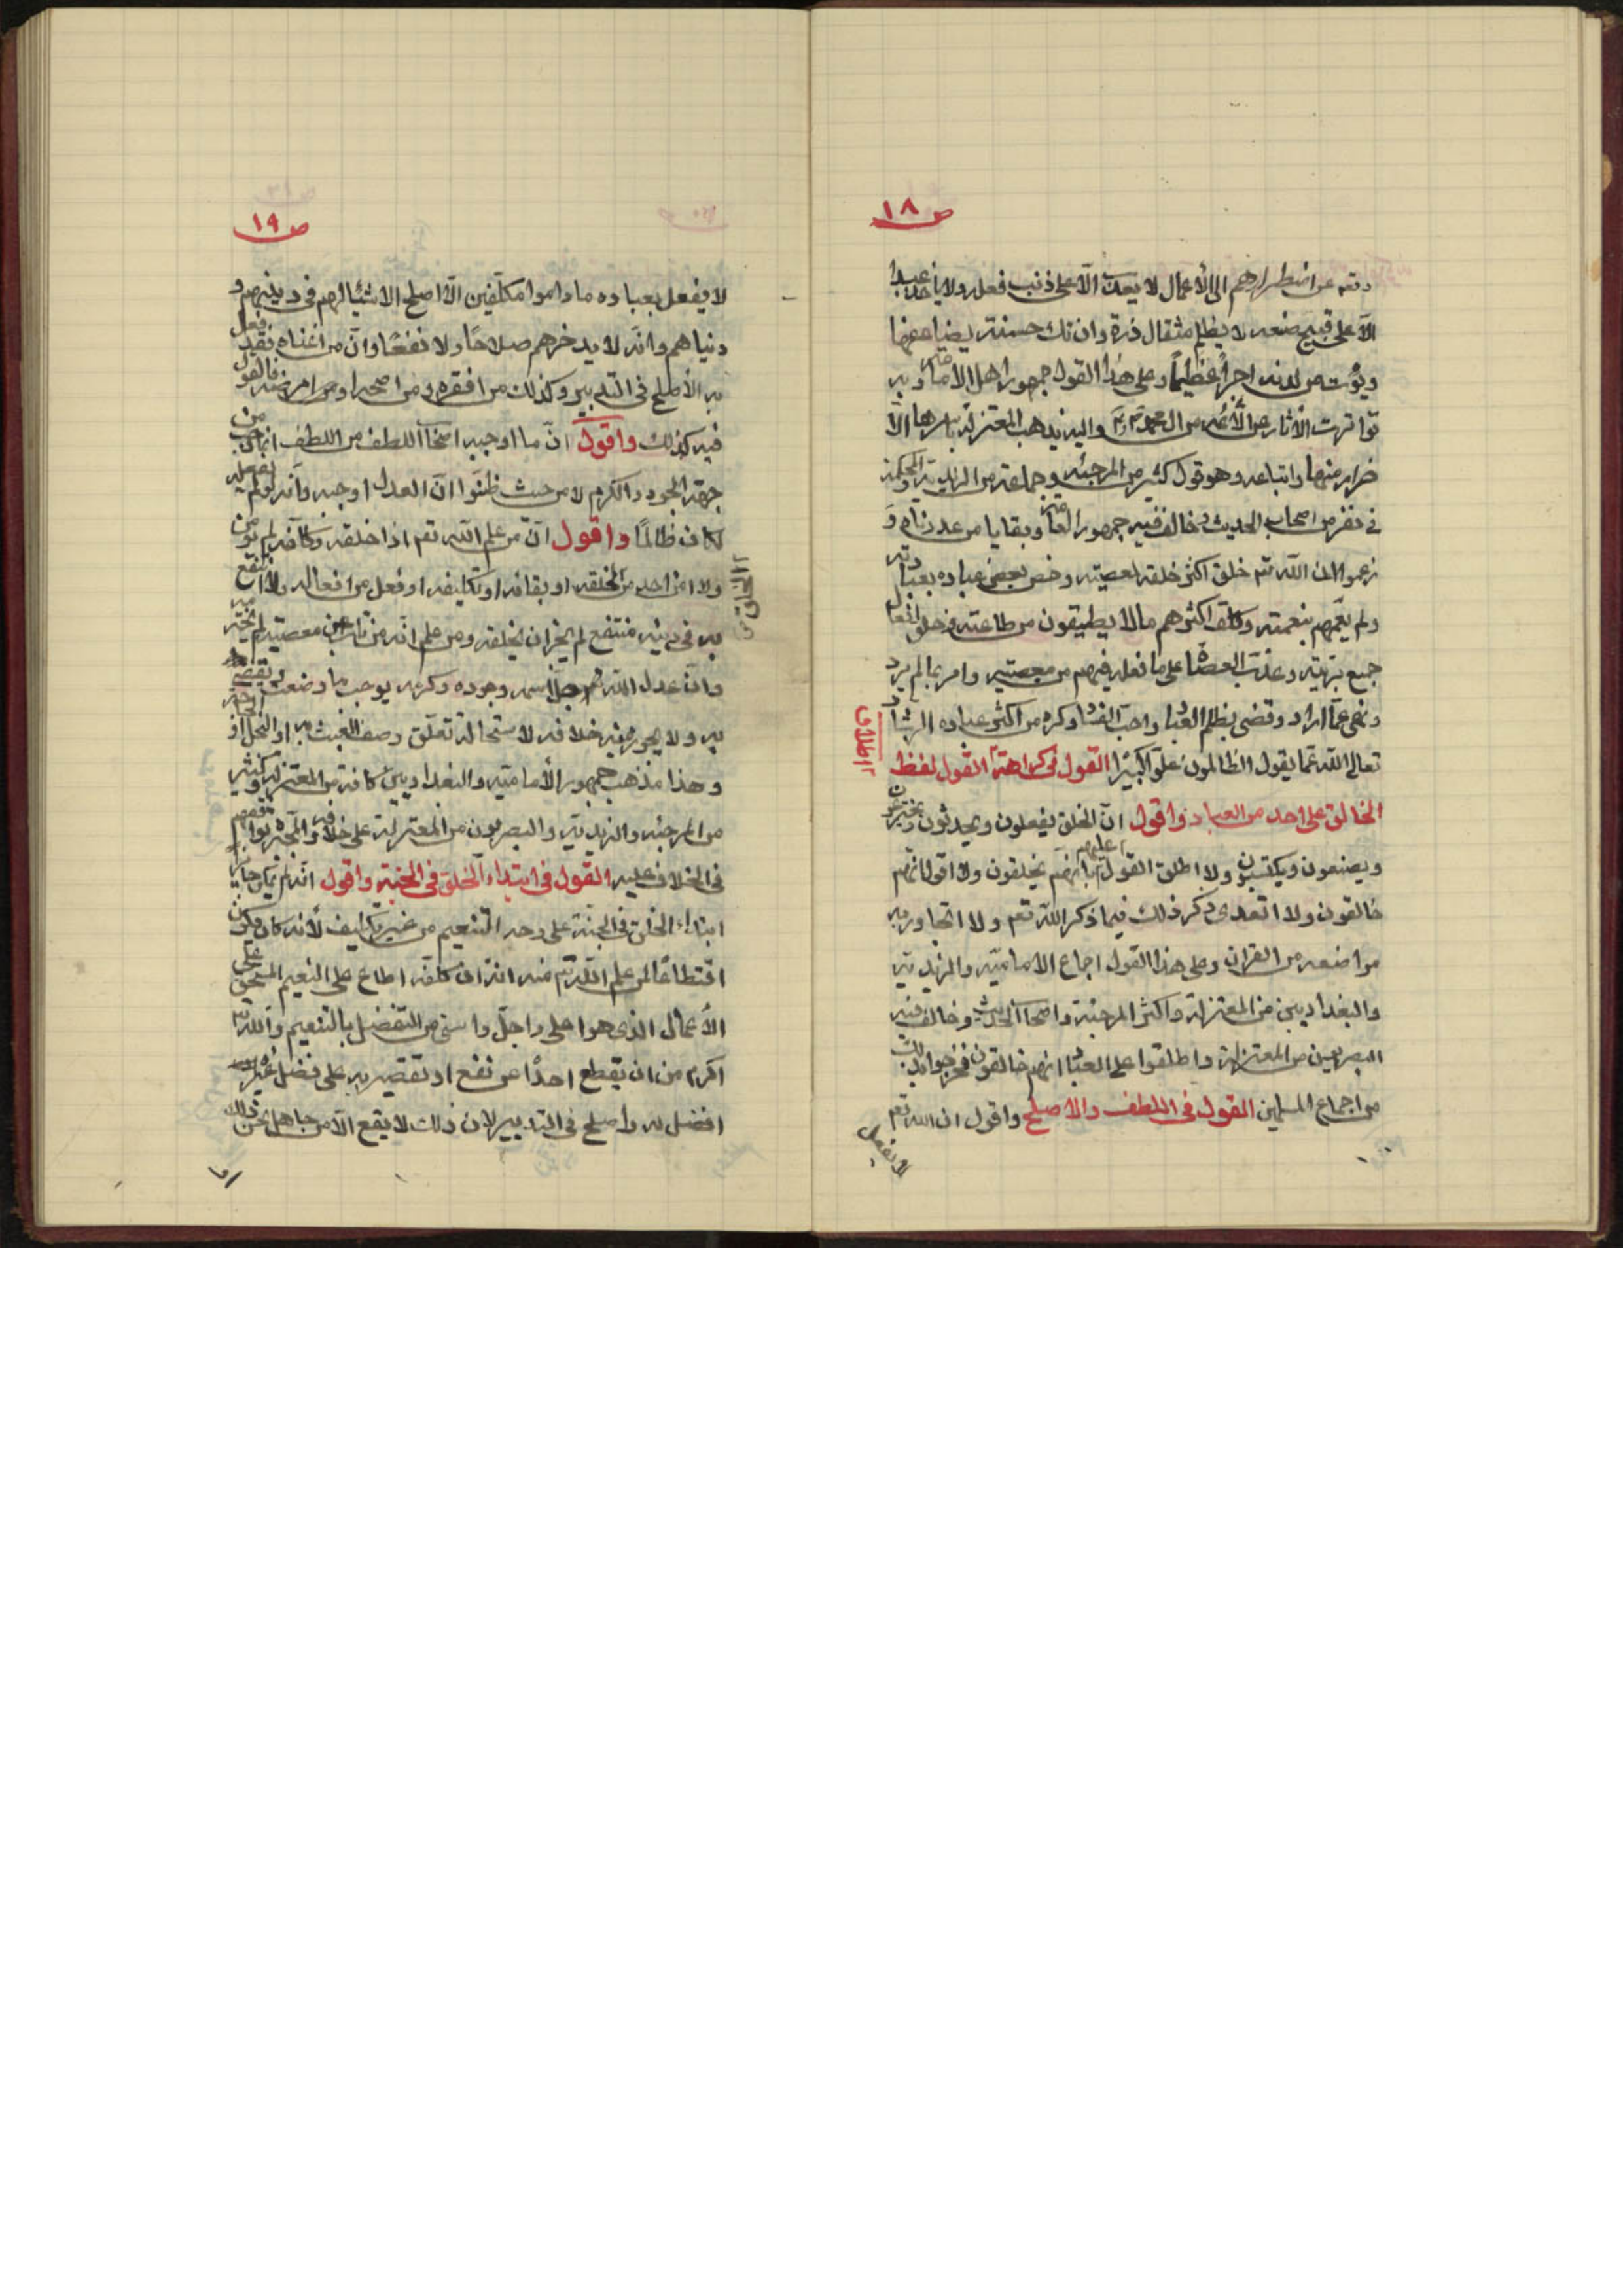 ص ١٨
وتعم عن اضطرارهم الى الأعمال لا يعذب الّا على ذنب فعله ولا يلوم عبدا
الّا على قبيح صنعه لا يظلم مثقال ذرة وان تك حسنة يضاعفها
ويؤت من لدنه اجراً عظيماً وعلى هذا القول جمهور اهل الأمامة وبه
تواترت الأثار عن الأئمة من ال محمد ص واليه يذهب المعتزلة باسرها الّا
ضرار منها واتباعه وهو قول كثير من المرجئه وجماعة من الزيدية والمحكمة
في نفر من اصحاب الحديث وخالف فيه جمهور العامة وبقايا من عددناه و
زعموا ان الله تم خلق اكثر خلقه لمعصيته وخص بعض عباده بعبادته
ولم يعمهم بنعمته وكلف اكثرهم مالا يطيقون من طاعته وخلق افعال
جميع بريته وعذب العصاة على ما فعله فيهم من معصيته وامر بما لم يرد
ونهى عمّا اراد وقضى بظلم العباد واحب الفساد وكره من اكثر عباده الرشاد
تعالى الله عمّا يقول الظالمون علوّا كبيرًا القول في كراهة القول لفظ
اطلاق
الخالق على احد من العباد واقول انّ الخلق يفعلون ويحدثون ويخترعون
ويصنعون ويكتسبون ولا اطلق القول عليهم بانهم يخلقون ولا اقول انهم
خالقون ولا اتعدى ذكر ذلك فيما ذكر الله تعم ولا اتجاوز به
مواضعه من القران وعلى هذا القول اجماع الاماميّه والزيديّه
والبغداديين من المعتزلة واكثر المرجئة واصحاب الحديث وخالف فيه
البصريين من المعتزلة واطلقوا على العباد انهم خالقون فخرجوا بذلك
من اجماع المسلمين القول في اللطف والاصلح واقول ان الله تعم
لا يفعل
ص ١٩
لا يفعل بعباده ما داموا مكلّفين الّا اصلح الاشياء لهم في دينهم و
دنياهم وانّه لا يدخرهم صلاحًا ولا نفعًا وانّ من اغناه فقد فعل
به الأصلح في التدبير وكذلك من افقره ومن اصحه ومن امرضه فالقول
فيه كذلك واقول انّ ما اوجبه اصحاب اللطف من اللطف انما وجب من
جهة الجود والكرم لا من حيث ظنّوا انّ العدل اوجبه وانّه لو لم يفعله
لكان ظالمًا واقول انّ من علم الله تعم اذا خلقه وكلّفه لم يؤمن
ولا امن احد من الخلق او بقائه او تكليفه او فعل من افعاله ولا انتفع
به في دينه منتفع لم يجز ان يخلقه ومن علم انّه من تاب عن معصيته لم يخترمه
وانّ عدل الله جلّ اسمه وجوده وكرمه يوجب ما وضعت ويقضي
به ولا يجوز منه خلافه لاستحالة تعلّق وصف العبث به او البخل او الحاجة
وهذا مذهب جمهور الأماميّه والبغداديين كافة من المعتزلة وكثير
من المرجئه والزيديّة والبصريون من المعتزلة على خلافه والمجبرة توافقهم
في الخلاف عليه القول في ابتداء الخلق في الجنة واقول انّه لم يكن جايزا
ابتداء الخلق في الجنة على وجه التنعيم من غير تكليف لأنه كان يكون
اقتطاعًا لمن علم الله تم منه انّه ان كلفه اطاع على النعيم المستحق على
الأعمال الذي هو اعلى واجلّ واسنى من التفضل بالتنعيم والله تم
اكرم من ان يقطع احدًا عن نفع او تقصير به على فضل غيره
افضل له واصلح في التدبير لان ذلك لا يقع الّا من جاهل بحسن ذلك